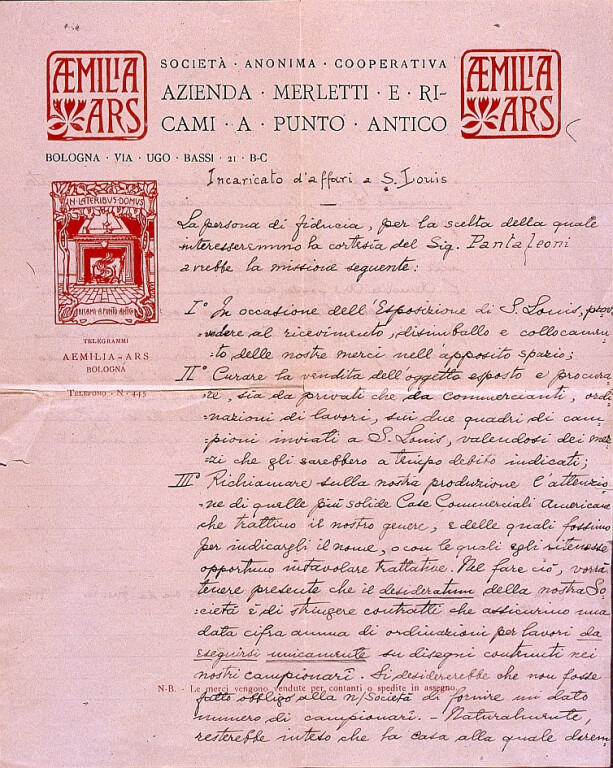 ÆMILIA
ARS
SOCIETÀ · ANONIMA · COOPERATIVA
AZIENDA · MERLETTI · E · RI-
CAMI · A · PUNTO · ANTICO
ÆMILIA
ARS
BOLOGNA · VIA · UGO · BASSI · 21 · B-C
IN LATERIBUS DOMUS
RICAMI A PUNTO ANTICO
TELEGRAMMI
AEMILIA-ARS
BOLOGNA
TELEFONO - N · 445
Incaricato d'affari a S. Louis
La persona di fiducia, per la scelta della quale
interesseremmo la cortesia del Sig. Pantaleoni
avrebbe la missione seguente:
I° In occasione dell'Esposizione di S. Louis, prov-
vedere al ricevimento, disimballo e collocamen-
to delle nostre merci nell'apposito spazio;
II° Curare la vendita dell'oggetto esposto e procura-
re, sia da privati che da commercianti, ordi-
nazioni di lavori, sui due quadri di cam-
pioni inviati a S. Louis, valendosi dei mez-
zi che gli sarebbero a tempo debito indicati;
III° Richiamare sulla nostra produzione l'attenzio-
ne di quelle più solide Case Commerciali Americane
che trattino il nostro genere, e delle quali fossimo
per indicargli il nome, o con le quali egli ritenesse
opportuno intavolare trattative. Nel fare ciò, vorrà
tenere presente che il desideratum della nostra So-
cietà è di stringere contratti che assicurino una
data cifra annua di ordinazioni per lavori da
eseguirsi unicamente su disegni contenuti nei
nostri campionarî. Si desidererebbe che non fosse
N-B. - Le merci vengono vendute per contanti o spedite in assegno.
fatto obbligo alla n/ Società di fornire un dato
numero di campionarî. - Naturalmente,
resterebbe inteso che la casa alla quale darem-